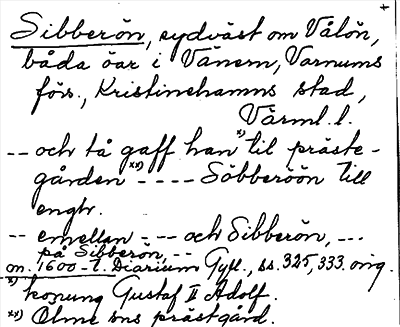 +
Sibberön, sydväst om Vålön,
båda öar i Vänern, Varnums
förs., Kristinehamns stad,
Värml. l.
-- och tå gaff han x) til präste-
gården xx) ---- Söbberöön till
engh.
-- emellan -- och Sibberön, ---
på Sibberön, --
om. 1600-t. Diarium Gyll., ss. 325, 333. orig.
x) konung Gustaf II Adolf.
xx) Ölme sns prästgård.